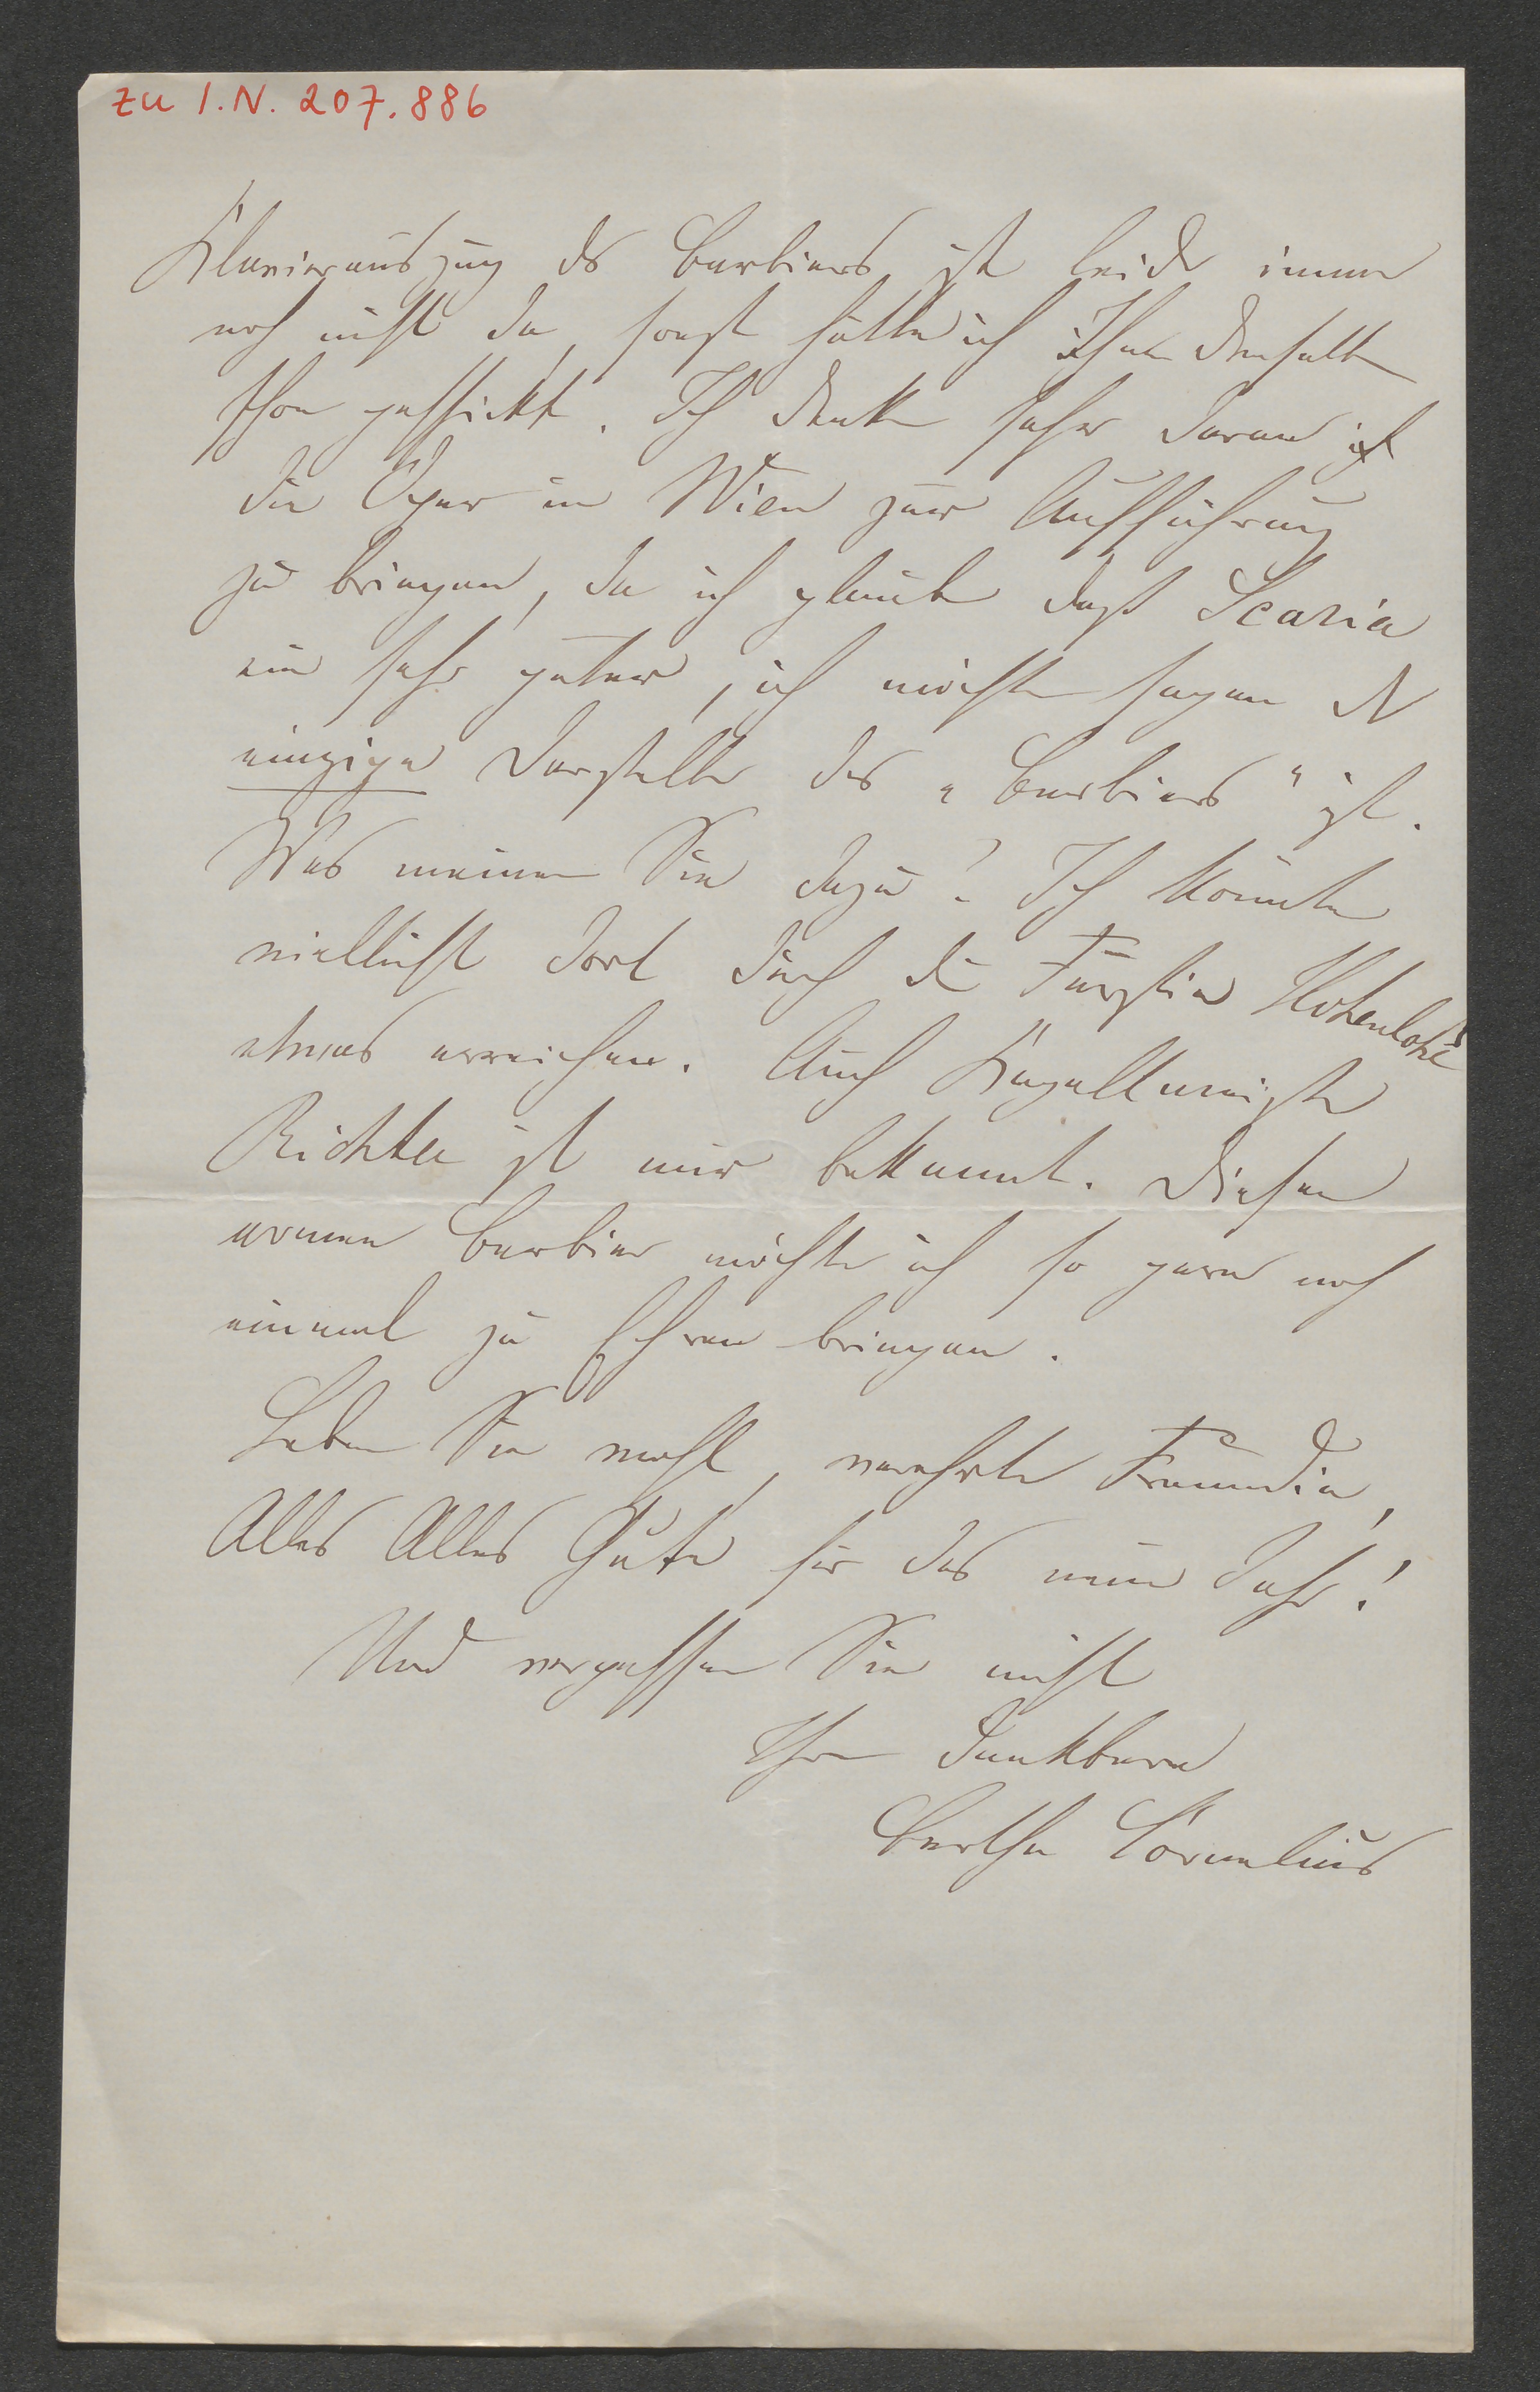 zu I.N. 207.886
Klavierauszug des Barbiers ist leider immer
noch nicht da, sonst hätte ich Ihnen denselben
schon geschickt. Ich denke sehr daran
die Oper in Wien zur Aufführung
zu bringen, da ich glaube daß Scaria
ein sehr guter, ich möchte sagen der
einzige Darsteller des „Barbiers" ist.
Was meinen Sie dazu? Ich könnte
vielleicht dort durch die Fürstin Hohenlohe
etwas erreichen. Auch Kapellmeister
Richter ist mir bekannt. Diesen
armen Barbier möchte ich so gern noch
einmal zu Ehren bringen.
Leben Sie wohl, verehrte Freundin,
Alles Alles Gute für das neue Jahr!
Und vergessen Sie nicht
Ihre dankbare
Bertha Cornelius